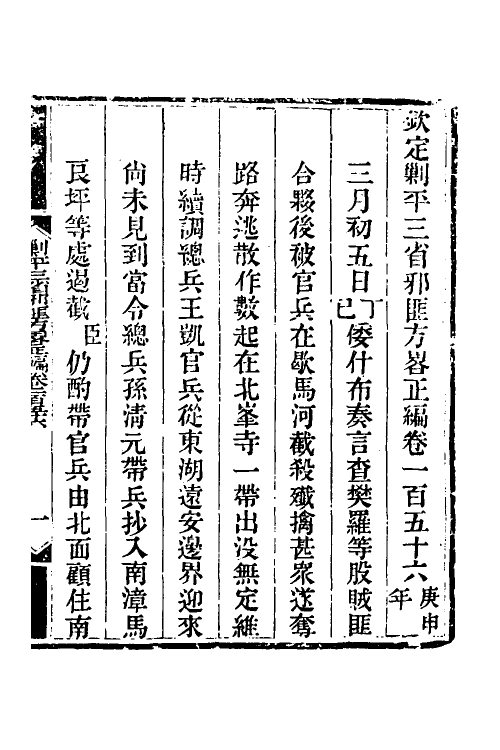 欽定剿平三省邪匪方畧正編卷一百五十六庚申年
三月初五日丁巳倭什布奏言查樊羅等股賊匪
合夥後被官兵在歇馬河截殺殲擒甚衆遂奪
路奔逃散作數起在北峯寺一帶出没無定維
時續調總兵王凱官兵從東湖遠安邊界迎來
尚未見到當令總兵孫清元帶兵抄入南漳馬
良坪等處遏截臣仍酌帶官兵由北面顧住南
剿平三省邪匪方畧正編卷一百五十六
一